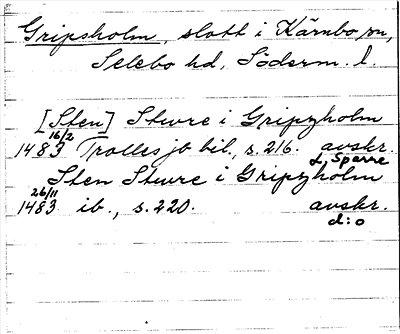 Gripsholm, slott i Kärnbo sn,
Selebo hd, Söderm. l.
[Sten] Sture i Gripzholm
16/2
1483 Trolles jb bil., s. 216. avskr.
L. Sparre
Sten Sture i Gripzholm
26/11
1483 ib., s. 220. avskr.
d:o